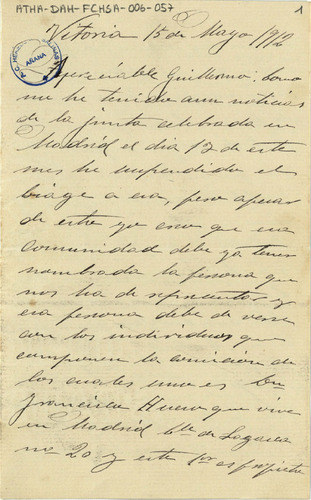 ATHA-DAH-FCHSA-006-057
1
Vitoria 15 de Mayo 1912
ARANA
Apreciable Guillermo: como
no he tenido aun noticias
de la junta celebrada en
Madrid el dia 12 de este
mes he suspendido el
biage a esa, pero apesar
de esto yo creo que esa
comunidad debe ya tener
nombrada la persona que
nos ha de representar y
esa persona debe de verse
con los individuos que
componen la comicion de
los cuales uno es Dn
Francisco Huero que vive
en Madrid Clle de Lagasca
no 20 y este Sr es propieta